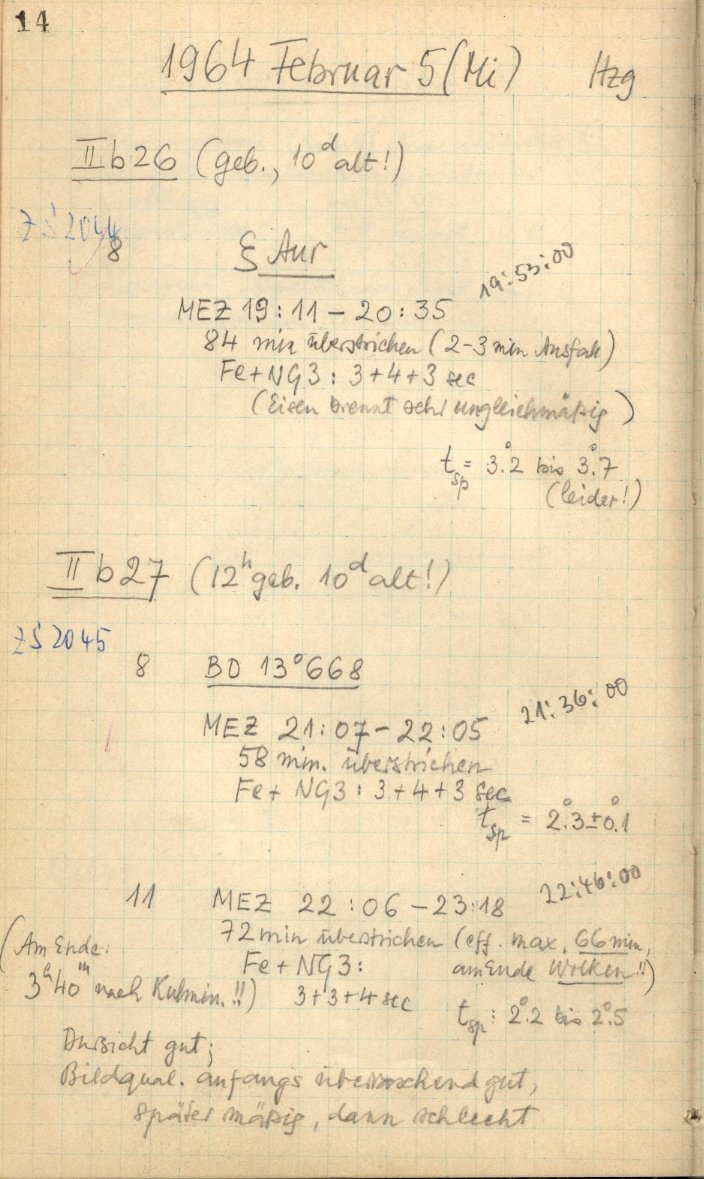 14
1964 Februar 5 (Mi) Hzg
II b 26 (geb., 10ᵈ alt!)
ZS 2044
8 ξ Aur
19:53:00
MEZ 19:11 – 20:35
84 min überstrichen (2-3 min Ausfall)
Fe + NG3: 3+4+3 sec
(Eisen brennt sehr ungleichmäßig)
t_sp = 3°.2 bis 3°.7
(leider!)
II b 27 (12ʰ geb. 10ᵈ alt!)
ZS 2045
8 BD 13°668
21:36:00
MEZ 21:07 – 22:05
58 min. überstrichen
Fe + NG3: 3+4+3 sec
t_sp = 2°.3 ± 0°.1
11 MEZ 22:06 – 23:18 22:46:00
72 min überstrichen (eff. max. 66 min,
am Ende Wolken!!)
Fe + NG3:
3+3+4 sec
(Am Ende:
3ʰ40ᵐ nach Kulmin.!!)
t_sp: 2°.2 bis 2°.5
Dursicht gut;
Bildqual. anfangs überraschend gut,
später mäßig, dann schlecht